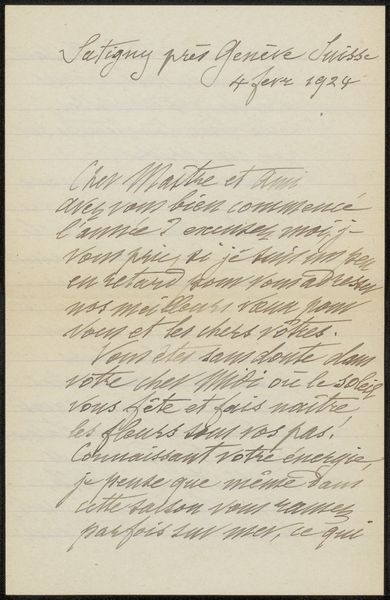 Satigny près Genève Suisse
4 fevr 1924
Cher Maître et ami
avez vous bien commencé
l'année? excusez moi, je
vous prie, si je suis un peu
en retard pour vous adresser
nos meilleurs vœux pour
vous et les chers vôtres.
Vous êtes sans doute dans
votre cher Midi où le soleil
vous fête et fais naître,
les fleurs sous vos pas.
Connaissant votre énergie,
je pense que même dans
cette saison vous ramez
parfois sur mer, ce qui